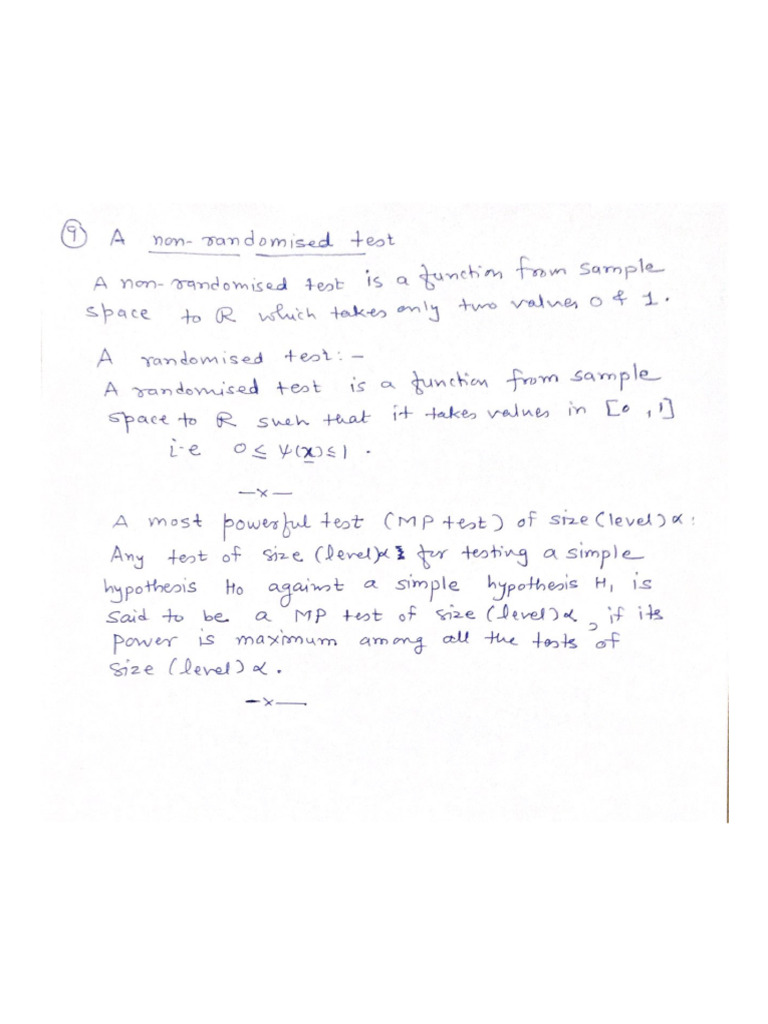 ⑨ A non-randomised test
A non-randomised test is a function from sample
space to R which takes only two values 0 & 1.
A randomised test:-
A randomised test is a function from sample
space to R such that it takes values in [0,1]
i.e 0≤ψ(x)≤1.
—x—
A most powerful test (MP test) of size(level)α:
Any test of size (level)α for testing a simple
hypothesis H₀ against a simple hypothesis H₁ is
said to be a MP test of size (level)α, if its
power is maximum among all the tests of
size (level)α.
—x—